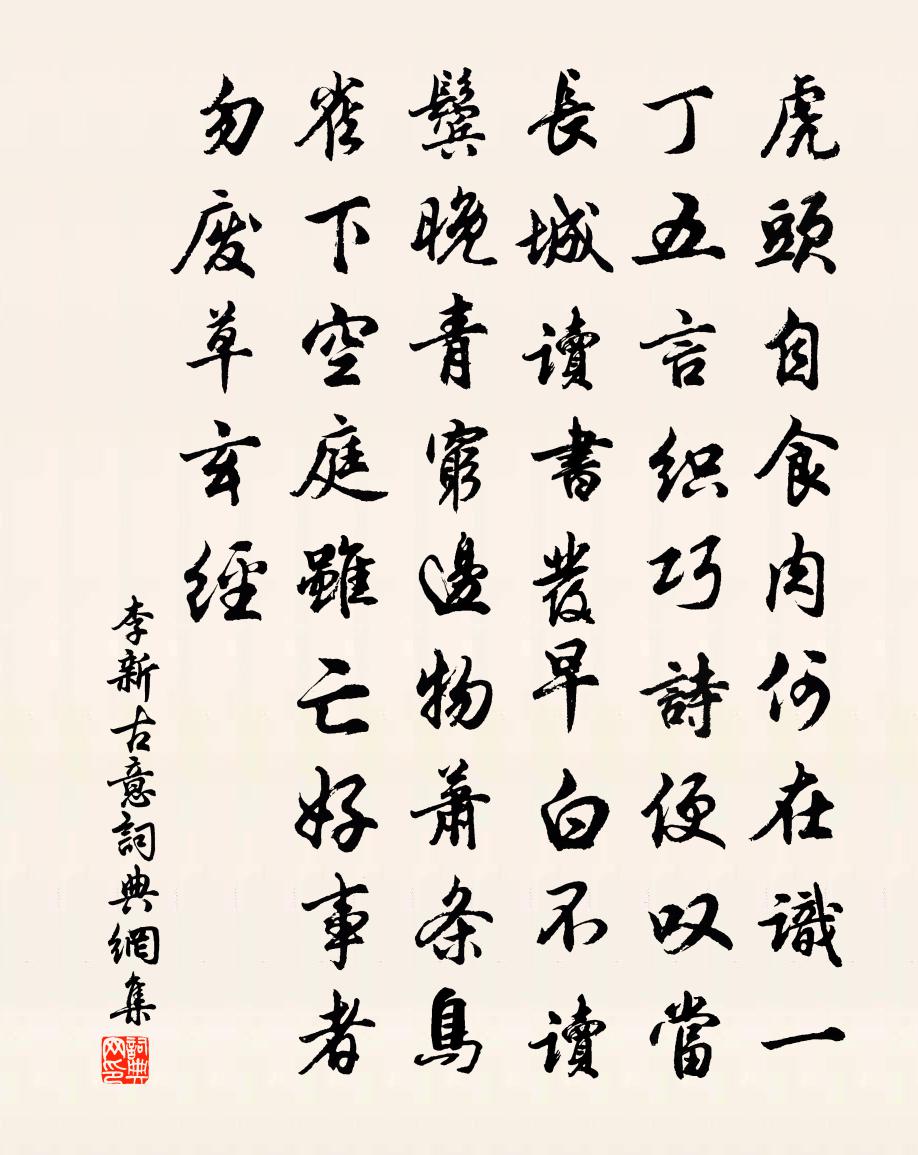 虎頭自食肉何在識一
丁五言織巧詩便叹當
長城讀書髮早白不讀
鬓晚青窮邊物蕭条鳥
雀下空庭雖亡好事者
勿廢草玄經
李新古意詞典網集
詞典网印